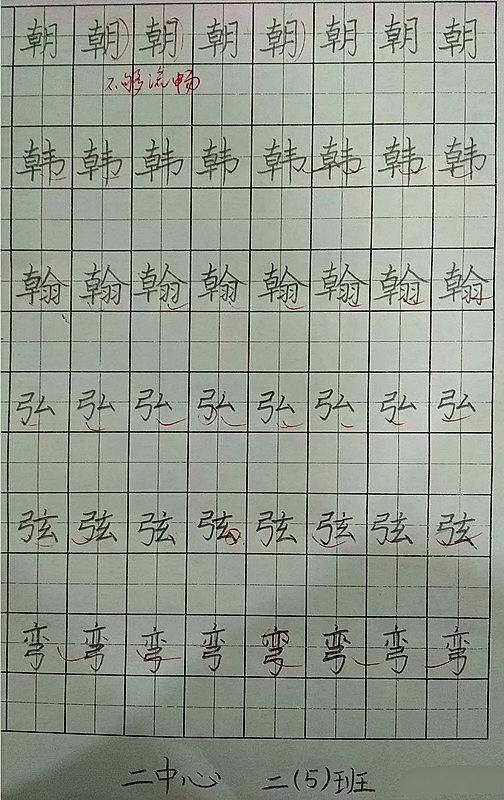 朝朝朝朝朝朝朝朝
不够流畅
韩韩韩韩韩韩韩韩
翰翰翰翰翰翰翰翰
弘弘弘弘弘弘弘弘
弦弦弦弦弦弦弦弦
弯弯弯弯弯弯弯弯
二中心 二(5)班